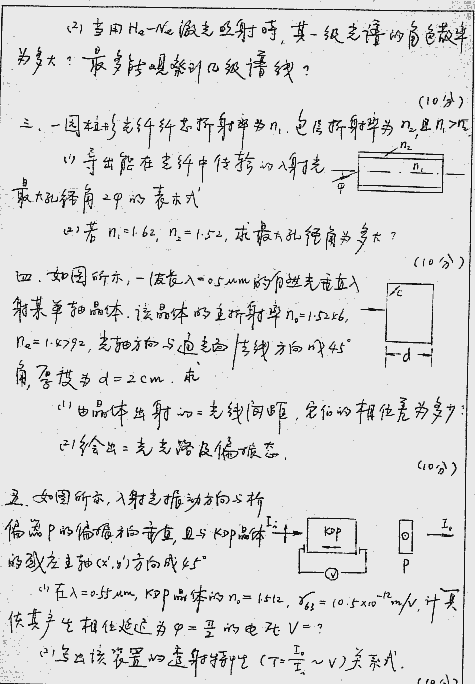 (2) 当用 He-Ne 激光照射时, 其一级光谱的角色散率
为多大? 最多能观察到几级谱线?
(10分)
三、一圆柱形光纤纤芯折射率为n₁, 包层折射率为n₂, 且n₁>n₂
(1) 导出能在光纤中传输的入射光
最大孔径角2φ的表示式
n₂
n₁
φ
(2) 若 n₁=1.62, n₂=1.52, 求最大孔径角为多大?
(10分)
四、如图所示, 一波长λ=0.5μm的自然光垂直入
射某单轴晶体, 该晶体的主折射率n₀=1.5246,
nₑ=1.4792, 光轴方向与通光面法线方向成45°
角, 厚度为d=2cm. 求
d
(1) 由晶体出射的二光线间距, 它们的相位差为多少?
(2) 绘出二光光路及偏振态.
(10分)
五、如图所示, 入射光振动方向与检
偏器P的偏振方向垂直, 且与KDP晶体
的感应主轴(x',y')方向成45°
Iᵢ
KDP
V
P
I₀
(1) 在λ=0.55μm, KDP晶体的n₀=1.512, γ₆₃=10.5×10⁻¹²m/V, 计算
使其产生相位延迟为φ=π/2的电压V=?
(2) 写出该装置的透射特性 (T=I₀/Iᵢ~V) 关系式.
(10分)